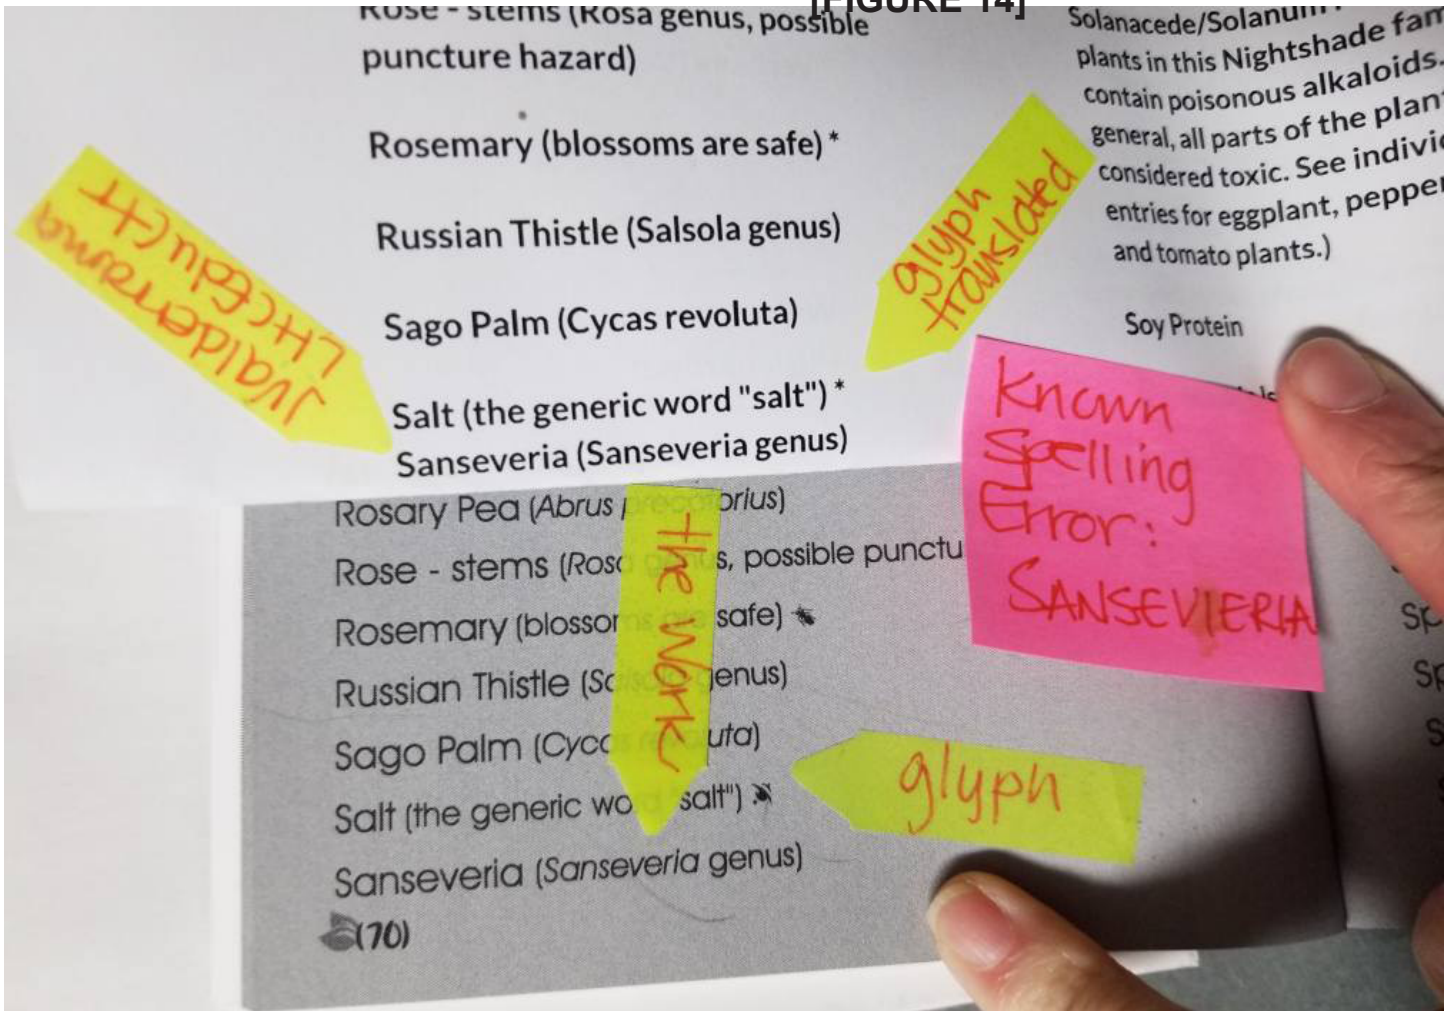 [FIGURE 14]
Rose - stems (Rosa genus, possible
puncture hazard)
Rosemary (blossoms are safe) *
Russian Thistle (Salsola genus)
Sago Palm (Cycas revoluta)
Salt (the generic word "salt") *
Sanseveria (Sanseveria genus)
Solanacede/Solanum
plants in this Nightshade fam
contain poisonous alkaloids.
general, all parts of the plant
considered toxic. See individ
entries for eggplant, pepper
and tomato plants.)
Soy Protein
jvalderrama
LHCEdu
glyph
translated
Known
Spelling
Error:
SANSEVIERIA
Rosary Pea (Abrus precatorius)
Rose - stems (Rosa genus, possible punctu
Rosemary (blossoms are safe)
Russian Thistle (Salsola genus)
Sago Palm (Cycas revoluta)
Salt (the generic word "salt")
Sanseveria (Sanseveria genus)
(70)
the work
glyph
Sp
Sp
S